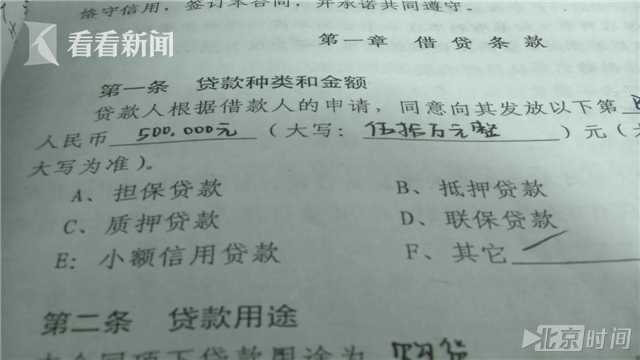 恪守信用，签订本合同，并承诺共同遵守。
看看新闻
第一章 借贷条款
第一条 贷款种类和金额
贷款人根据借款人的申请，同意向其发放以下第
人民币 500.000元 （大写：伍拾万元整 ）元（
大写为准）。
A、担保贷款 B、抵押贷款
C、质押贷款 D、联保贷款
E: 小额信用贷款 F、其它
第二条 贷款用途
本合同项下贷款用途为 购货
北京时间